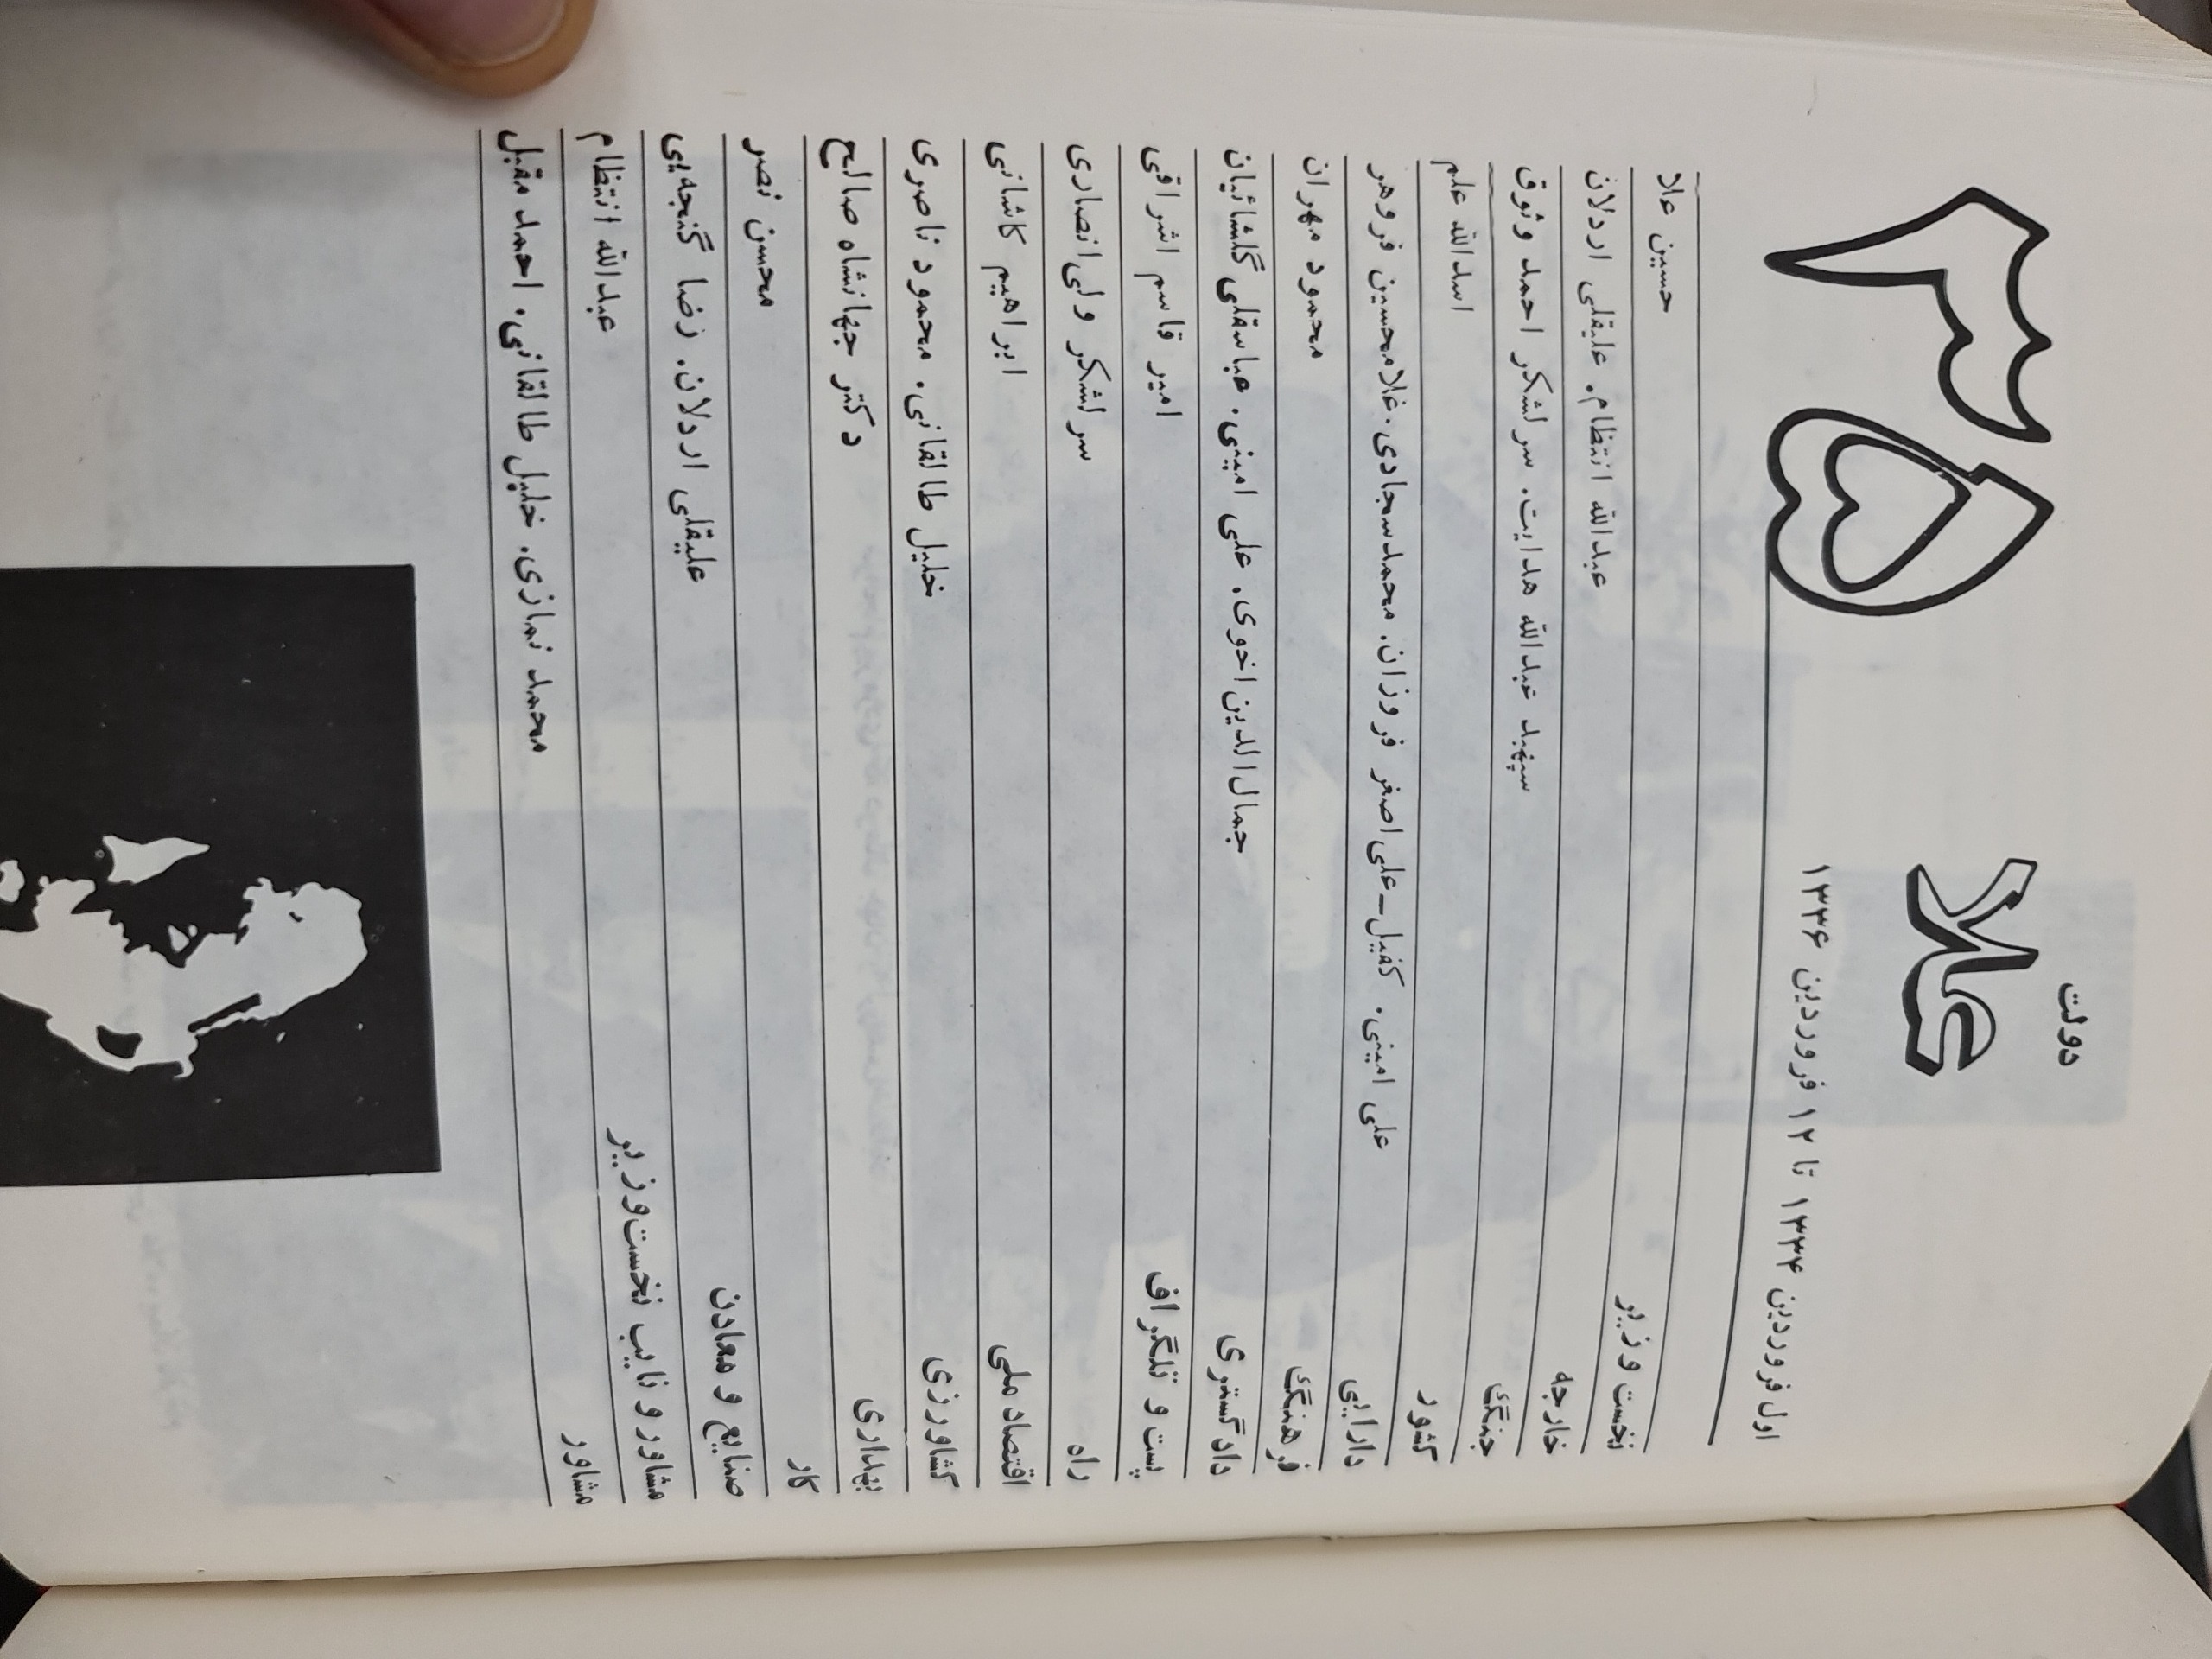 ۳۵
دولت
علا
اول فروردین ۱۳۳۴ تا ۱۲ فروردین ۱۳۳۶
نخست وزیر حسین علا
خارجه عبدالله انتظام. علیقلی اردلان
جنگ سپهبد عبدالله هدایت. سرلشکر احمد وثوق
کشور اسدالله علم
دارایی علی امینی. کفیل_علی اصغر فروزان. محمدسجادی. غلامحسین فروهر
فرهنگ محمود مهران
دادگستری جمال الدین اخوی. علی امینی. عباسقلی گلشائیان
پست و تلگراف امیر قاسم اشراقی
راه سرلشکر ولی انصاری
اقتصاد ملی ابراهیم کاشانی
کشاورزی خلیل طالقانی. محمود ناصری
بهداری دکتر جهانشاه صالح
کار محسن نصر
صنایع و معادن علیقلی اردلان. رضا گنجه‌یی
مشاور و نایب نخست‌وزیر عبدالله انتظام
مشاور محمد نمازی. خلیل طالقانی. احمد مقبل